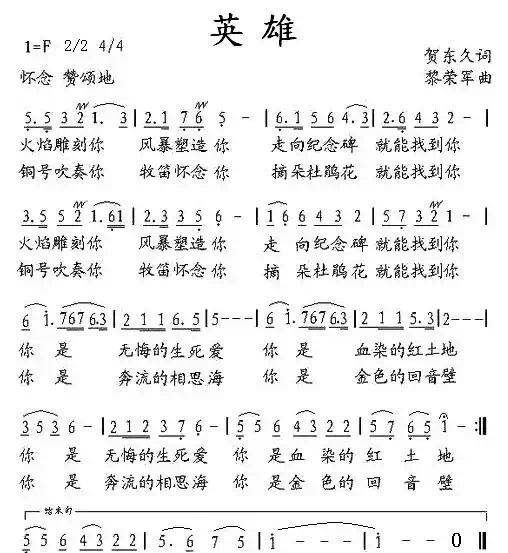 英雄
1=F 2/2 4/4
贺东久词
怀念 赞颂地
黎荣军曲
5. 5 3 2 1. 3 | 2. 1 7 6 5 - | 6. 1 5 6 4. 3 | 2. 6 4 3 2 - |
火焰雕刻你 风暴塑造你 走向纪念碑 就能找到你
铜号吹奏你 牧笛怀念你 摘朵杜鹃花 就能找到你
3. 5 5 2 1. 61 | 2. 3 3 5 6 - | 1 6 6 4 3 2 | 5 7 3 2 1 - |
火焰雕刻你 风暴塑造你 走 向纪念碑 就能找到你
铜号吹奏你 牧笛怀念你 摘 朵杜鹃花 就能找到你
6 1. 767 6.3 | 2 1 1 2 6. 5 | 5 - - - | 6 1. 767 6.3 | 2 1 1 5. 3 | 2 - - - |
你 是 无悔的生死爱 你 是 血染的红土地
你 是 奔流的相思海 你 是 金色的回音壁
3 5 3 6 - | 2 1 2 3 7 5 6 - | 5 5 6 4 3 2 2 | 5 7 6 5 1 - :||
你 是 无悔的生死爱 你 是血 染的 红 土 地
你 是 奔流的相思海 你 是金 色的 回 音 壁
结束句
5 5 6 4 3 2 2 | 5. 6 7 5 | 1 - - - | 1 - 0 ||